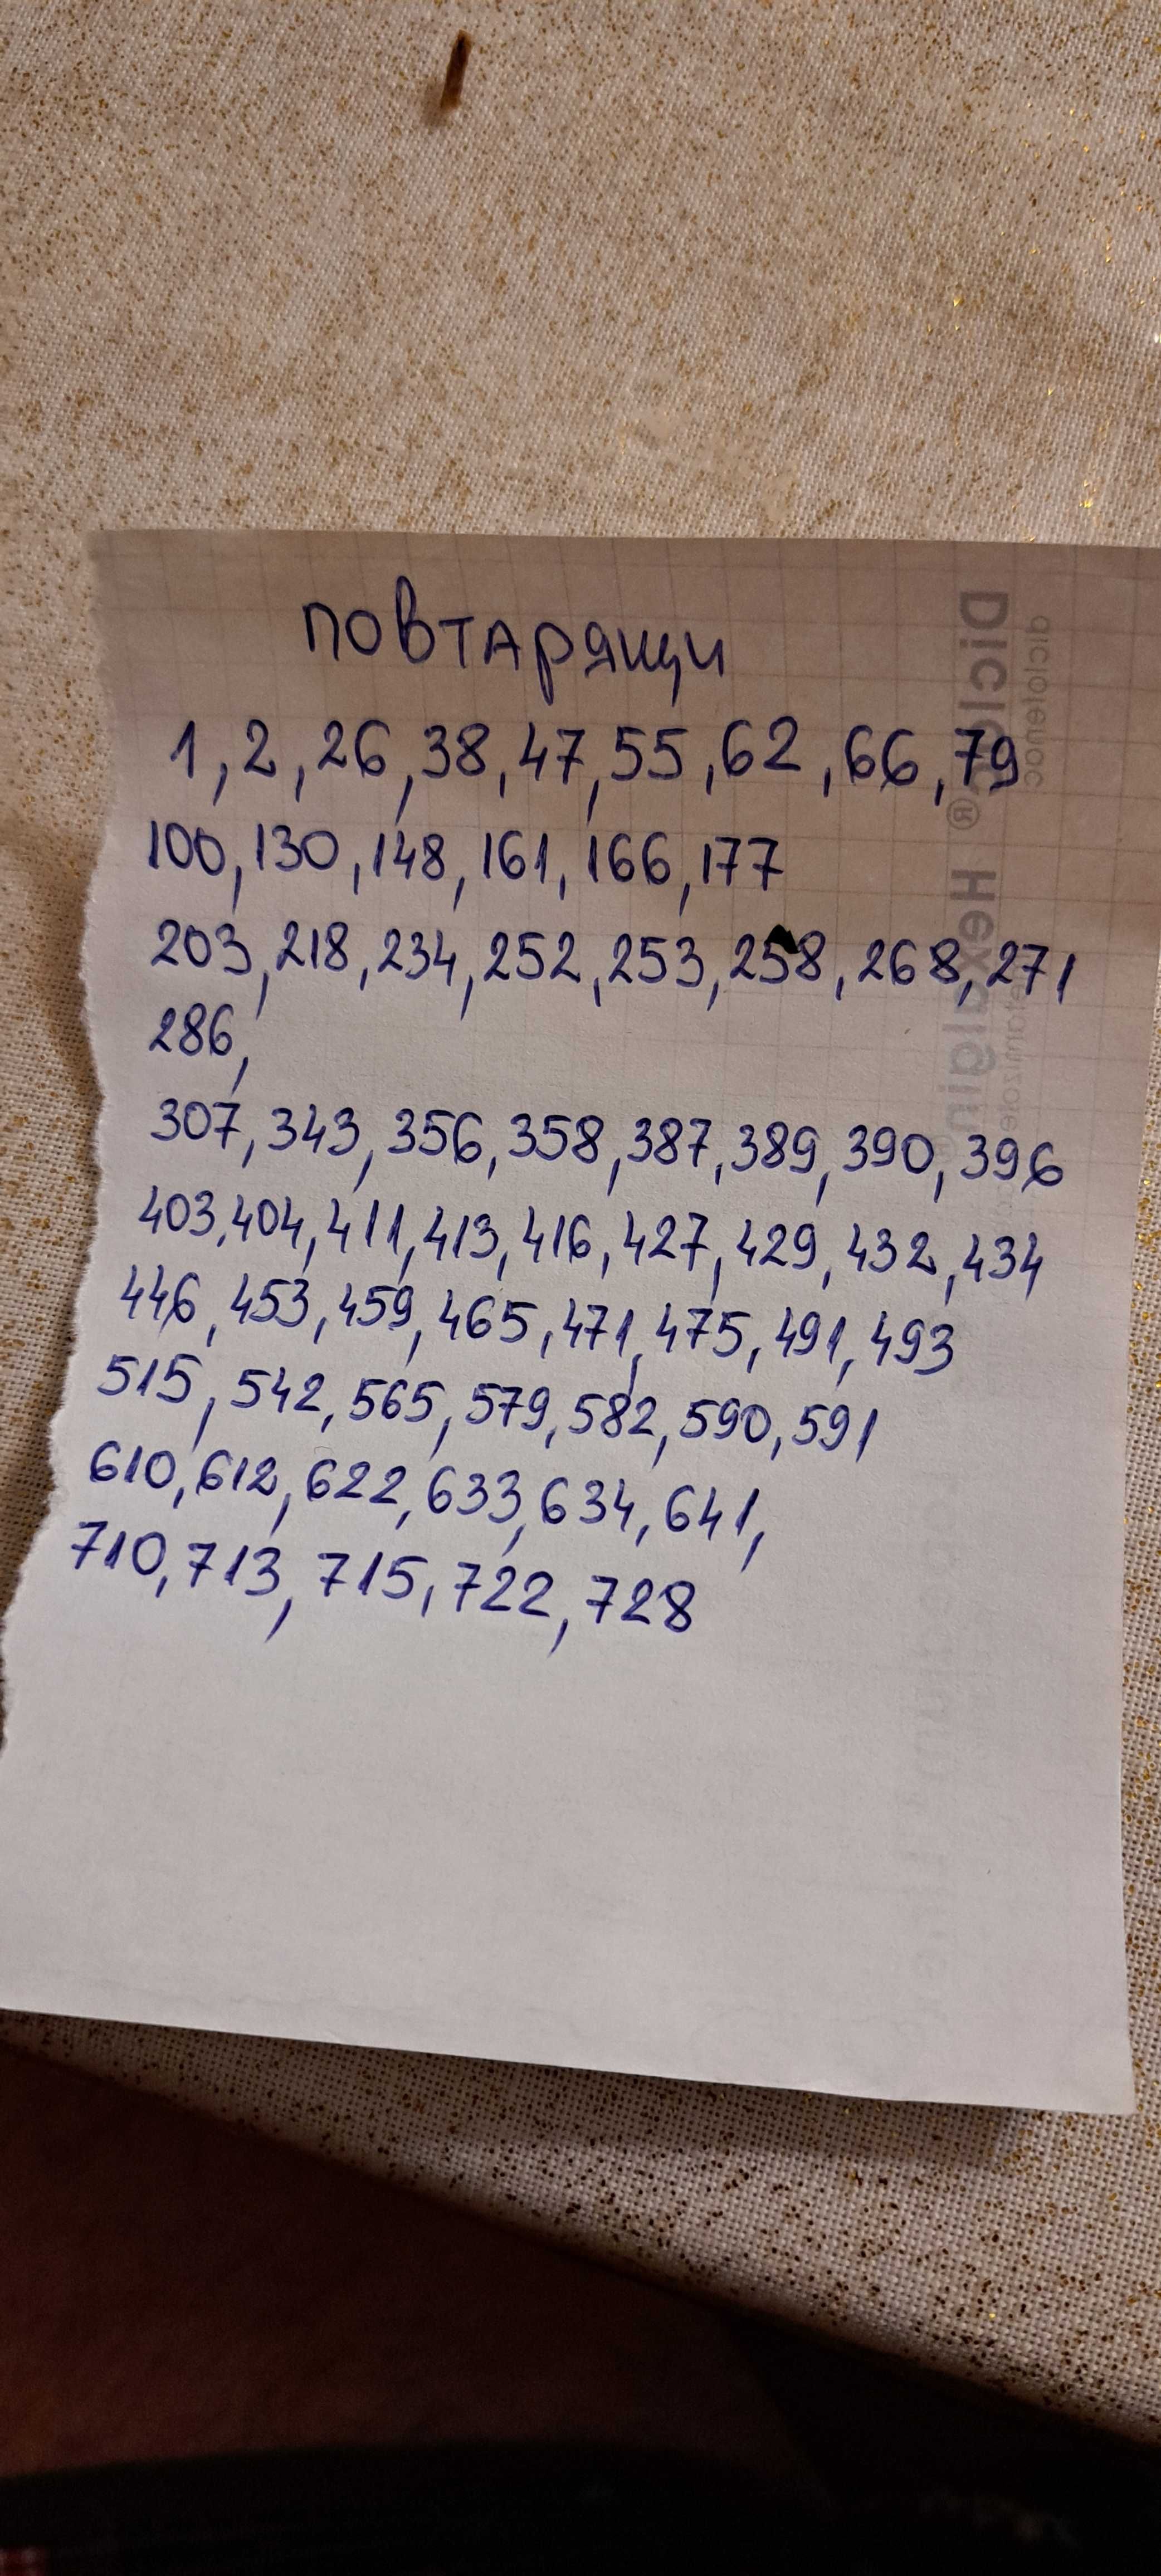 повтарящи
1, 2, 26, 38, 47, 55, 62, 66, 79
100, 130, 148, 161, 166, 177
203, 218, 234, 252, 253, 258, 268, 271
286,
307, 343, 356, 358, 387, 389, 390, 396
403, 404, 411, 413, 416, 427, 429, 432, 434
446, 453, 459, 465, 471, 475, 491, 493
515, 542, 565, 579, 582, 590, 591
610, 612, 622, 633, 634, 641,
710, 713, 715, 722, 728